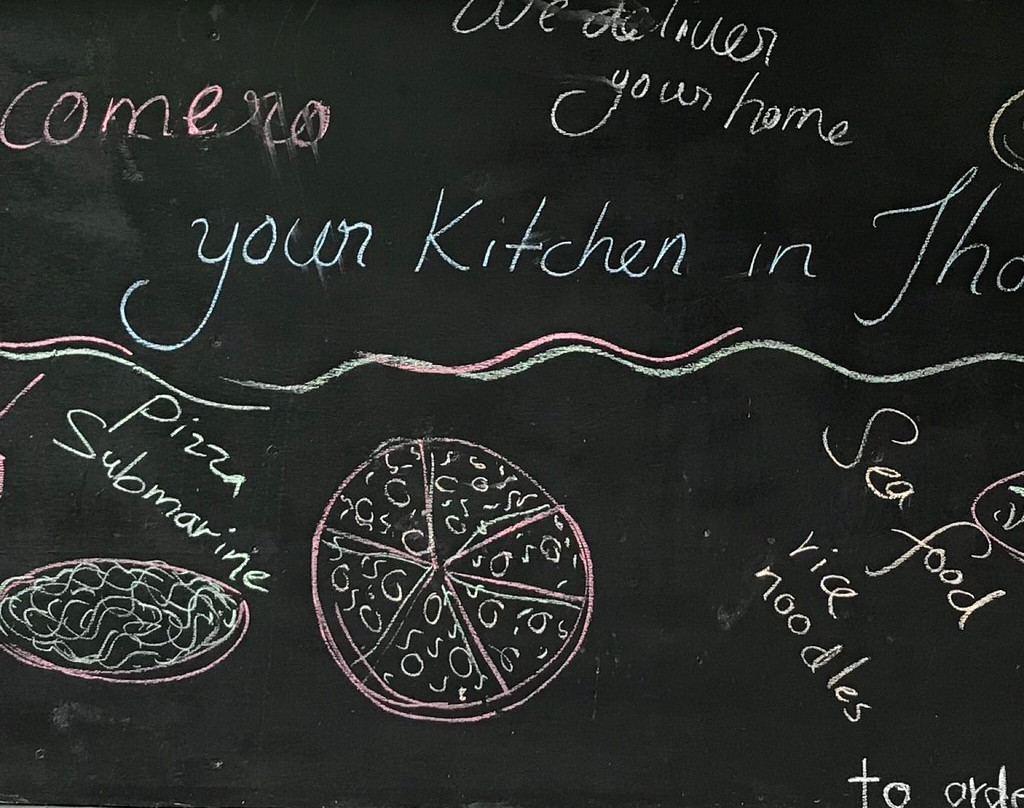 We deliver
your home
come
your Kitchen in Tho
Pizza
Submarine
Sea
food
rice
noodles
to orde